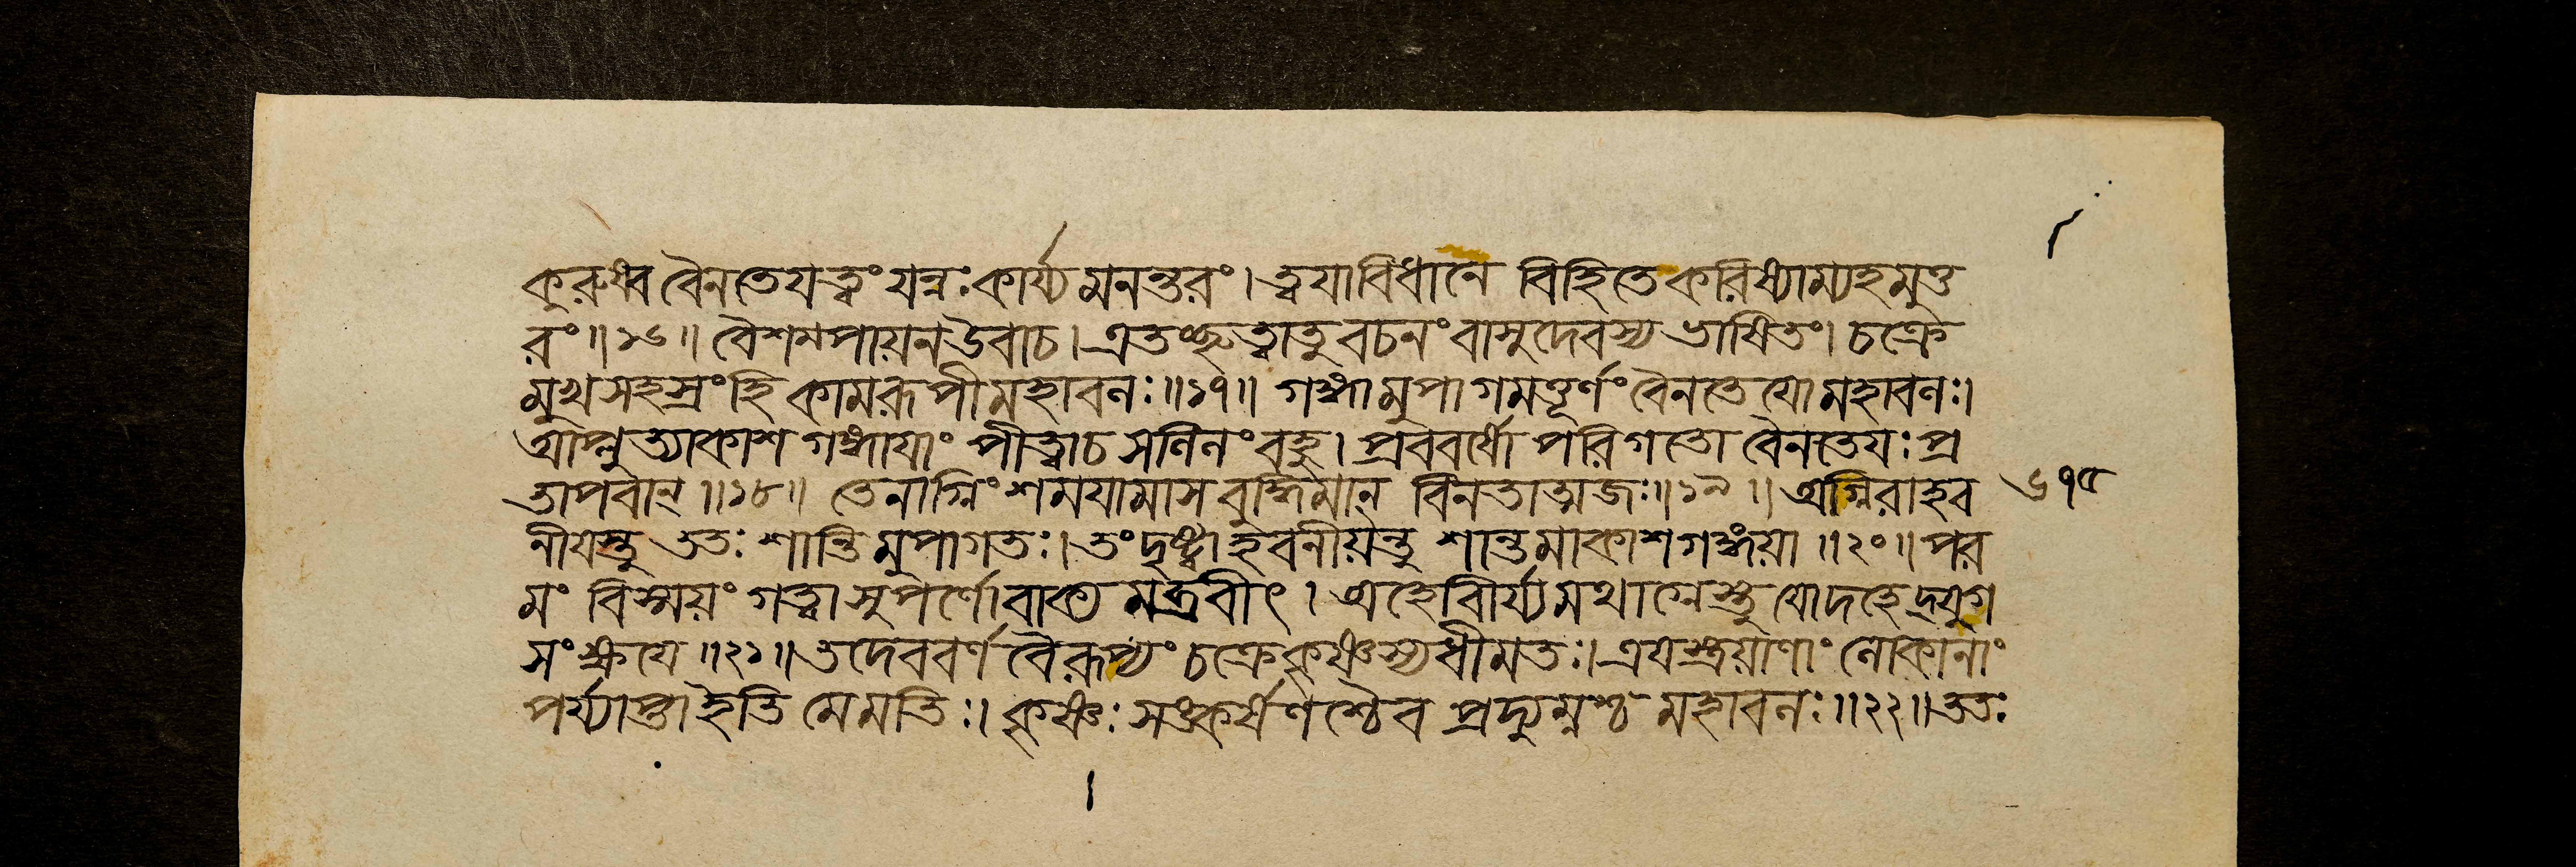 কুরুষ্ব বৈনতেয ত্বং যন্নঃ কার্য্য মনন্তরং। ত্বযা বিধানে বিহিতে করিষ্যাম্যহমুত্ত
রং॥১৬॥ বৈশমপায়ন উবাচ। এতচ্ছ্রুত্বা তু বচনং বাসুদেবস্য ভাষিতং। চক্রে
মুখসহস্রং হি কামরূপী মহাবলঃ॥১৭॥ গঙ্গামুপাগমত্তূর্ণং বৈনতেযো মহাবলঃ।
আপ্লুত্যাকাশ গঙ্গাযাং পীত্বা চ সলিলং বহু। প্রববর্ষোপরি গতো বৈনতেযঃ প্র
তাপবান্॥১৮॥ তেনাগ্নিং শমযামাস বুদ্ধিমান্ বিনতাত্মজঃ॥১৯॥ অগ্নিরাহব ৬৭৫
নীযস্তু ততঃ শান্তিমুপাগতঃ। তং দৃষ্ট্বাহবনীয়ন্তু শান্তমাকাশগঙ্গয়া॥২০॥ পর
মং বিস্ময়ং গত্বা সুপর্ণো বাক্য মব্রবীৎ। অহো বীর্য্যমথাগ্নেস্তু যো দহেদ্ যুগ
সংক্ষযে॥২১॥ তদেব বর্ণ বৈরূপ্যং চক্রে কৃষ্ণস্য ধীমতঃ। ত্রযস্ত্রয়াণাং লোকানাং
পর্য্যাপ্তা ইতি মে মতিঃ। কৃষ্ণঃ সঙ্কর্ষণশ্চৈব প্রদ্যুম্নশ্চ মহাবলঃ॥২২॥ ততঃ